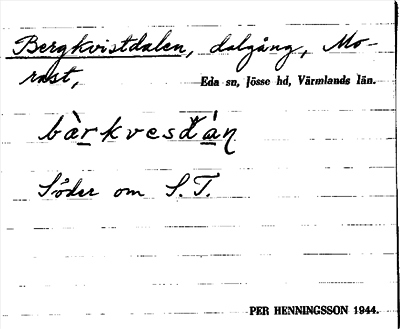 Bergkvistdalen, dalgång, Mo-
rast,
Eda sn, Jösse hd, Värmlands län.
bàrkvesdánֽ
Söder om S.T.
PER HENNINGSSON 1944.